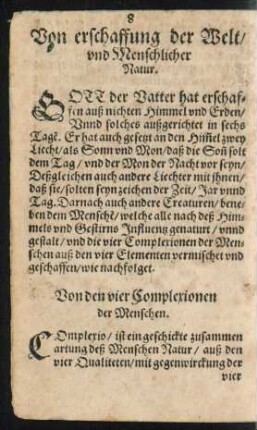 8
Von erschaffung der Welt/
vnd Menschlicher
Natur.
GOTT der Vatter hat erschaf-
fen auß nichten Himmel vnd Erden/
Vnnd solches außgerichtet in sechs
Tagē. Er hat auch gesetzt an den Him̄el zwey
Liecht/ als Sonn vnd Mon/ daß die Son̄ solt
dem Tag/ vnd der Mon der Nacht vor seyn/
Deßgleichen auch andere Liechter mit jhnen/
daß sie/ solten seyn zeichen der Zeit/ Jar vnnd
Tag. Darnach auch andere Creaturen/ bene-
ben dem Menschē/ welche alle nach deß Him-
mels vnd Gestirns Influentz genaturt/ vnnd
gestalt/ vnd die vier Complexionen der Men-
schen auß den vier Elementen vermischet vnd
geschaffen/ wie nachfolget.
Von den vier Complexionen
der Menschen.
COmplexio/ ist ein geschickte zusammen
artung deß Menschen Natur/ auß den
vier Qualiteten/ mit gegenwirckung der
vier